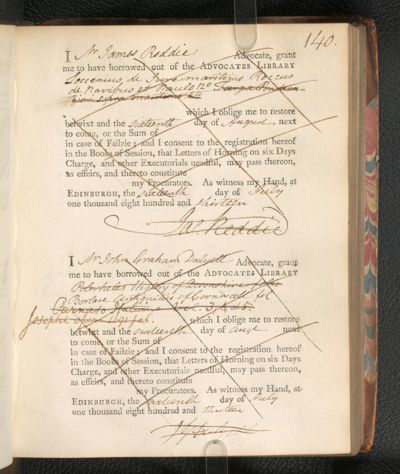 140.
I Mr James Reddie Advocate, grant
me to have borrowed out of the ADVOCATES LIBRARY
Loccenius, de Jure maritimo Roccus
de Navibus et Naulo 12o
which I oblige me to restore
betwixt and the sixteenth day of August next
to come, or the Sum of
in case of Failzie; and I consent to the registration hereof
in the Books of Session, that Letters of Horning on six Days
Charge, and other Executorials needful, may pass thereon,
as effeirs, and thereto constitute
my Procurators. As witness my Hand, at
EDINBURGH, the sixteenth day of July
one thousand eight hundred and thirteen
Jas Reddie
I Mr John Graham Dalyell Advocate, grant
me to have borrowed out of the ADVOCATES LIBRARY
Polwhele's History of Devonshire fol
Borlase Antiquities of Cornwall fol
Parnaso Italiano
Josephi opera fol.
which I oblige me to restore
betwixt and the sixteenth day of Augt next
to come, or the Sum of
in case of Failzie; and I consent to the registration hereof
in the Books of Session, that Letters of Horning on six Days
Charge, and other Executorials needful, may pass thereon,
as effeirs, and thereto constitute
my Procurators. As witness my Hand, at
EDINBURGH, the sixteenth day of July
one thousand eight hundred and thirteen